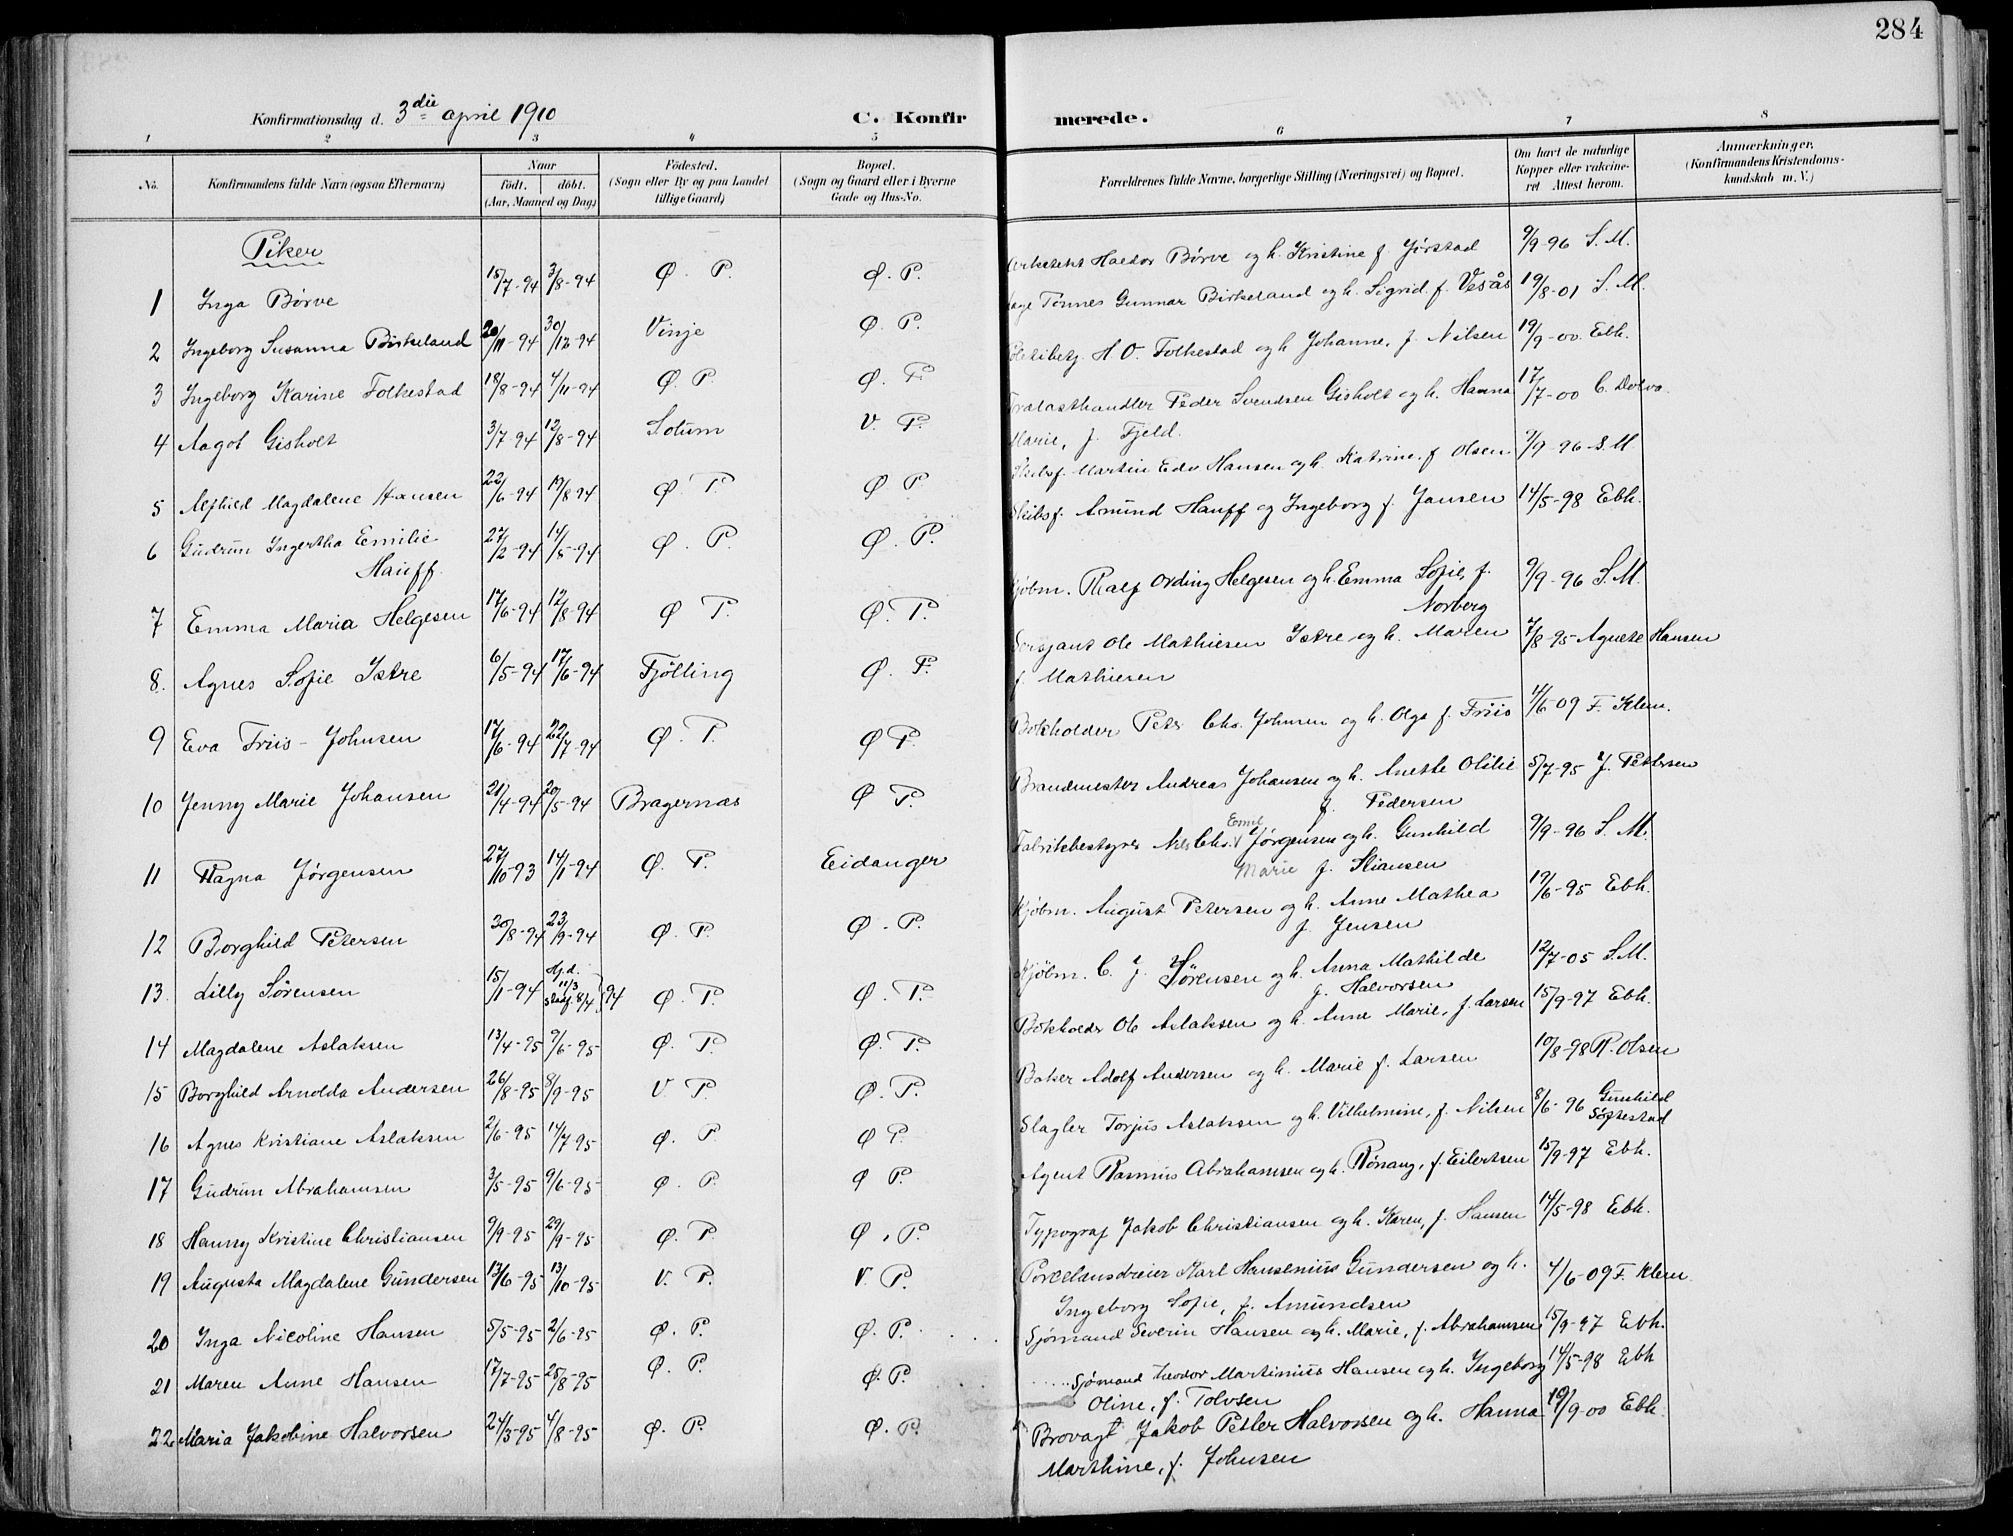 284
Konfirmationsdag d. 3die april 1910
C. Konfirmerede.
1 2 3 4 5 6 7 8
No.
Konfirmandens fulde Navn (ogsaa Efternavn)
Naar
födt. döbt.
(Aar, Maaned og Dag)
Födested.
(Sogn eller By og paa Landet
tillige Gaard)
Bopæl.
(Sogn og Gaard eller i Byerne
Gade og Hus-No.
Forældrenes fulde Navne, borgerlige Stilling (Næringsvei) og Bopæl.
Om havt de naturlige
Kopper eller vakcine-
ret Attest herom.
Anmærkninger.
(Konfirmandens Kristendoms-
kundskab m. V.)
Piker
1 Inga Börve 15/7-94 3/8-94 Ø. P. Ø. P. Arkitekt Haldor Börve og h. Kristine f. Jörstad 9/9-96 S. M.
2 Ingeborg Susanna Birkeland 20/11-94 30/12-94 Vinje Ø. P. Tönnes Gunnar Birkeland og h. Sigrid f. Vesås 19/8-01 S. M.
3 Ingeborg Karine Folkestad 18/8-94 4/11-94 Ø. P. Ø. P. H. O. Folkestad og h. Johanne, f. Nilsen 19/9-00. Ebh.
4 Aagot Gisholt 3/7-94 12/8-94 Solum V. P. Trælasthandler Peder Svendsen Gisholt og h. Hanna 17/7-00 C. Dolva.
Marie, f. Fjeld.
5 Alfhild Magdalene Hansen 22/6-94 19/8 94 Ø. P. Ø P. Skibsf. Martin Edv Hansen og h. Katrine f Olsen 9/9-96 S. M
6 Gudrun Ingertha Emilie 27/2-94 14/5-94 Ø. P. Ø. P. Skibsf. Amund Hauff og Ingeborg f. Jansen 14/5-98 Ebh.
Hauff.
7 Emma Maria Helgesen 17/6-94 12/8-94 Ø P. Ø. P. Kjöbm. Ralf Ording Helgesen og h. Emma Sofie, f. 9/9-96 S. M.
Norberg
8. Agnes Sofie Istre 6/5-94 17/6-94 Tjölling Ø. P. Sersjant Ole Mathiesen Istre og h. Maren 7/8-95 Agnete Hansen
f. Mathiesen
9 Eva Friis-Johnsen 17/6-94 22/7-94 Ø. P. Ø P. Bokholder Peter Chr. Johnsen og h. Olga f. Friis 4/6 09 F. Klem.
10 Jenny Marie Johansen 21/4-94 20/5-94 Bragernæs Ø P. Brandmester Andreas Johansen og h. Anette Otilie 5/7-95 J. Pettersen
f. Pedersen
11 Ragna Jörgensen 27/10-93 14/1-94 Ø. P. Eidanger Fabrikbestyrer Nils Chr. Emil Jörgensen og h. Gunhild 9/9-96 S. M.
Marie f. Stiansen
12 Borghild Petersen 30/8-94 23/9-94 Ø. P. Ø. P. Kjöbm. August Petersen og h. Anne Mathea 19/6-95 Ebh.
f. Jensen
13. Lilly Sörensen 15/1-94 Hj.d. 11/3 stadf. 8/4 94 Ø. P. Ø. P. Kjöbm. C. J. Sörensen og h. Anna Mathilde 12/7-05 S. M.
f. Halvorsen
14 Magdalene Aslaksen 13/4-95 9/6-95 Ø. P. Ø. P. Bokholder Ole Aslaksen og h. Anne Marie, f. Larsen 15/9-97 Ebh.
15 Borghild Arnolda Andersen 26/8-95 8/9-95 V. P. Ø. P. Baker Adolf Andersen og h. Marie f. Larsen 10/8-98 R. Olsen
16 Agnes Kristiane Aslaksen 2/6-95 14/7-95 Ø. P. Ø P. Slagter Torjus Aslaksen og h. Vilhelmine, f. Nilsen 8/6-96 Gunhild
Söftestad
17 Gudrun Abrahamsen 3/5-95 9/6-95 Ø. P. Ø P. Agent Rasmus Abrahamsen og h. Rönaug, f. Eilertsen 15/9-97 Ebh.
18 Hanny Kristine Christiansen 9/9-95 29/9-95 Ø. P. Ø. P. Typograf Jakob Christiansen og h. Karen, f. Hansen 14/5-98 Ebh.
19 Augusta Magdalene Gundersen 13/6-95 13/10-95 V. P. V. P. Porcelænsdreier Karl Hansenius Gundersen og h. 4/6-09 F. Klem
Ingeborg Sofie, f. Amundsen
20 Inga Nicoline Hansen 5/5-95 2/6-95 Ø. P. Ø. P. Sjömand Severin Hansen og h. Marie, f. Abrahamsen 15/9-97 Ebh.
21 Maren Anne Hansen 17/7-95 25/8-95 Ø. P. Ø. P. Sjömand Theodor Martinius Hansen og h. Ingeborg 14/5-98 Ebh
Oline, f. Tolvsen
22. Maria Jakobine Halvorsen 24/3-95 4/8-95 Ø. P. Ø. P. Brovagt Jakob Petter Halvorsen og h. Hanna 19/9-00 Ebh.
Marthine, f. Johnsen